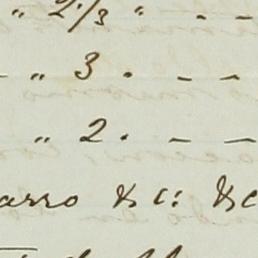 " 2/3 " - -
" 3 . - -
" 2 . - -
arro &c: &c